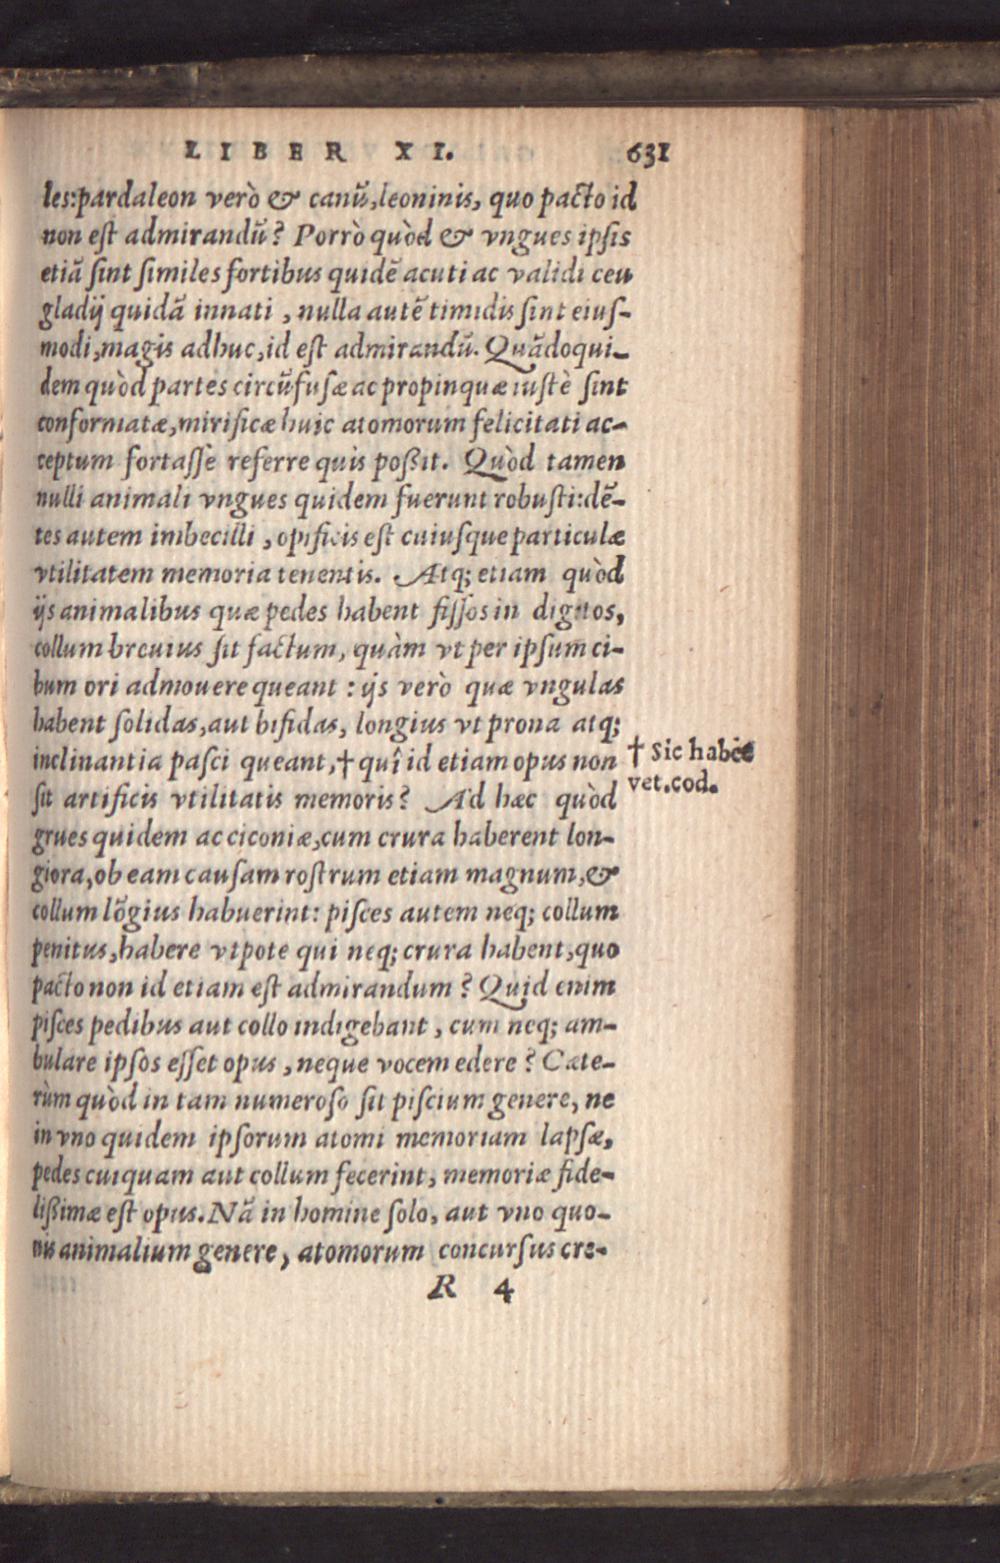 LIBER XI. 631
les:pardaleon verò & canũ,leoninis, quo pacto id
non est admirandũ? Porrò quòd & vngues ipsis
etiã sint similes fortibus quidẽ acuti ac validi ceu
gladij quidã innati, nulla autẽ timidis sint eius-
modi,magis adhuc,id est admirandũ. Quãdoqui-
dem quòd partes circũfusæ ac propinquæ iustè sint
conformatæ,mirificæ huic atomorum felicitati ac-
ceptum fortassè referre quis poßit. Quòd tamen
nulli animali vngues quidem fuerunt robusti:dẽ-
tes autem imbecilli, opificis est cuiusque particulæ
vtilitatem memoria tenentis. Atq; etiam quòd
ijs animalibus quæ pedes habent fissos in digitos,
collum breuius sit factum, quàm vt per ipsum ci-
bum ori admouere queant : ijs verò quæ vngulas
habent solidas,aut bifidas, longius vt prona atq;
inclinantia pasci queant,† quî id etiam opus non
sit artificis vtilitatis memoris? Ad hæc quòd
grues quidem ac ciconiæ,cum crura haberent lon-
giora,ob eam causam rostrum etiam magnum,&
collum lõgius habuerint: pisces autem neq; collum
penitus,habere vtpote qui neq; crura habent,quo
pacto non id etiam est admirandum? Quid enim
pisces pedibus aut collo indigebant, cum neq; am-
bulare ipsos esset opus, neque vocem edere? Cæte-
rùm quòd in tam numeroso sit piscium genere, ne
in vno quidem ipsorum atomi memoriam lapsæ,
pedes cuiquam aut collum fecerint, memoriæ fide-
lißimæ est opus. Nã in homine solo, aut vno quo-
uis animalium genere, atomorum concursus cre-
R 4
† Sic habet
vet.cod.